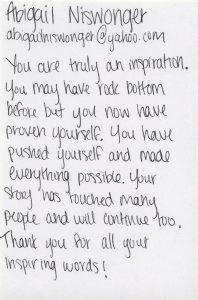 Abigail Niswonger
abigailniswonger@yahoo.com
You are truly an inspiration.
You may have rock bottom
before but you now have
proven yourself. You have
pushed yourself and made
everything possible. Your
story has touched many
people and will continue too.
Thank you for all your
inspiring words!